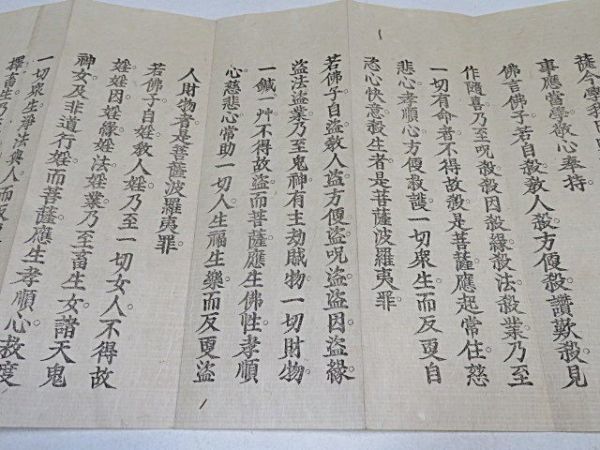 今學我
事應當學敬心奉持。
佛言佛子若自殺教人殺方便殺讚歎殺見
作隨喜乃至呪殺殺因殺緣殺法殺業乃至
一切有命者不得故殺是菩薩應起常住慈
悲心孝順心方便救護一切眾生而反更自
恣心快意殺生者是菩薩波羅夷罪
若佛子自盜教人盜方便盜呪盜盜因盜緣
盜法盜業乃至鬼神有主劫賊物一切財物
一鍼一艸不得故盜而菩薩應生佛性孝順
心慈悲心常助一切人生福生樂而反更盜
人財物者是菩薩波羅夷罪
若佛子自婬教人婬乃至一切女人不得故
婬婬因婬緣婬法婬業乃至畜生女諸天鬼
神女及非道行婬而菩薩應生孝順心救度
一切眾生淨法與人而
擇畜生乃